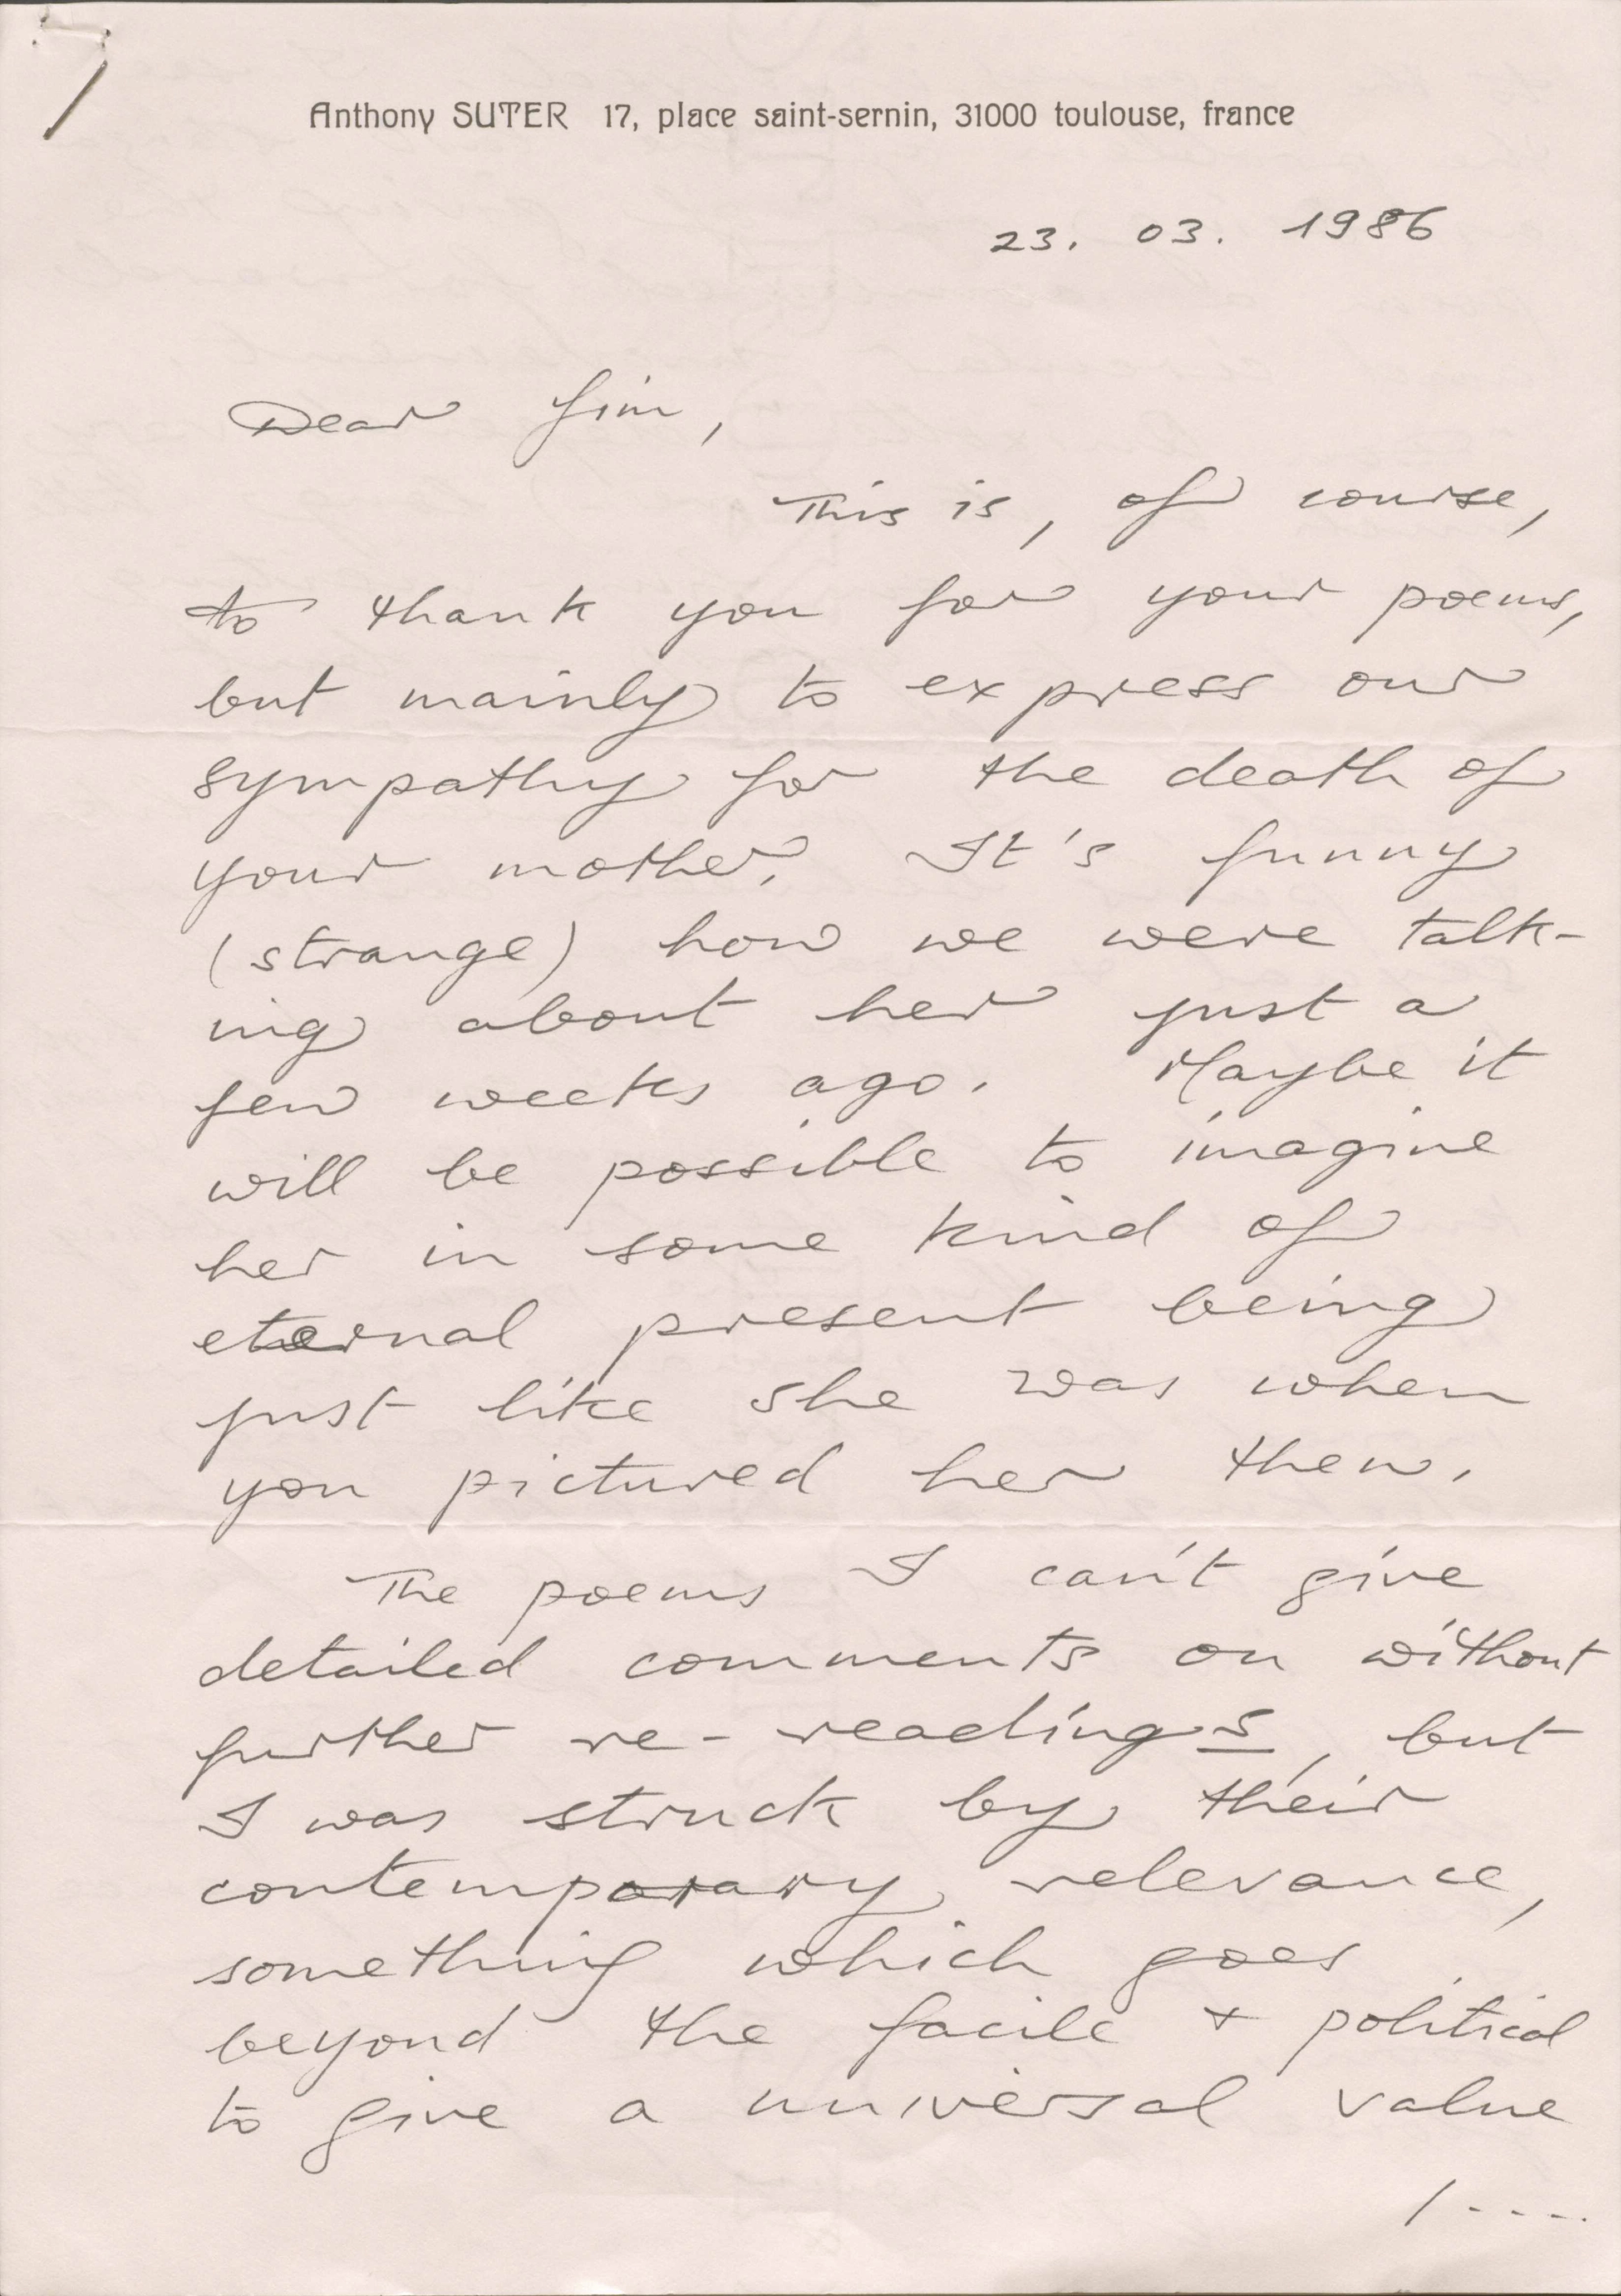 Anthony SUTER 17, place saint-sernin, 31000 toulouse, france
23. 03. 1986
Dear Jim,
This is, of course,
to thank you for your poems,
but mainly to express our
sympathy for the death of
your mother. It's funny
(strange) how we were talk-
ing about her just a
few weeks ago. Maybe it
will be possible to imagine
her in some kind of
eternal present being
just like she was when
you pictured her then.
The poems I can't give
detailed comments on without
further re-readings, but
I was struck by their
contemporary relevance,
something which goes
beyond the facile + political
to give a universal value
/----